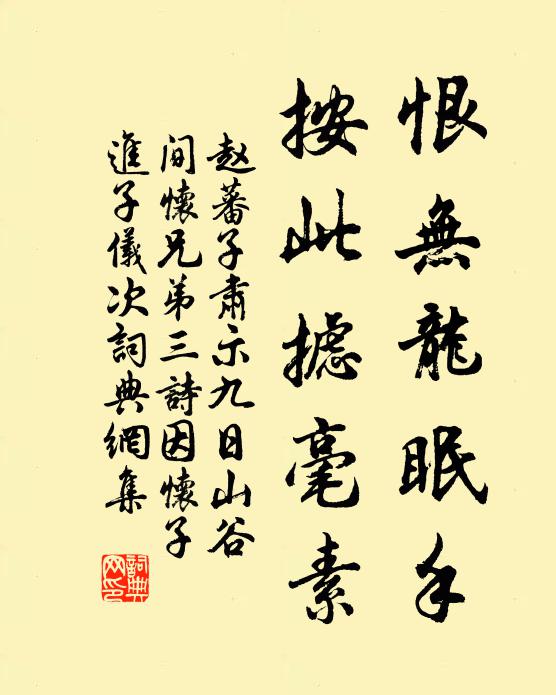 恨無龍眠手
按此攄毫素
赵蕃子肅示九日山谷
间懐兄弟三詩因懐子
進子儀次詞典網集
詞典
网印